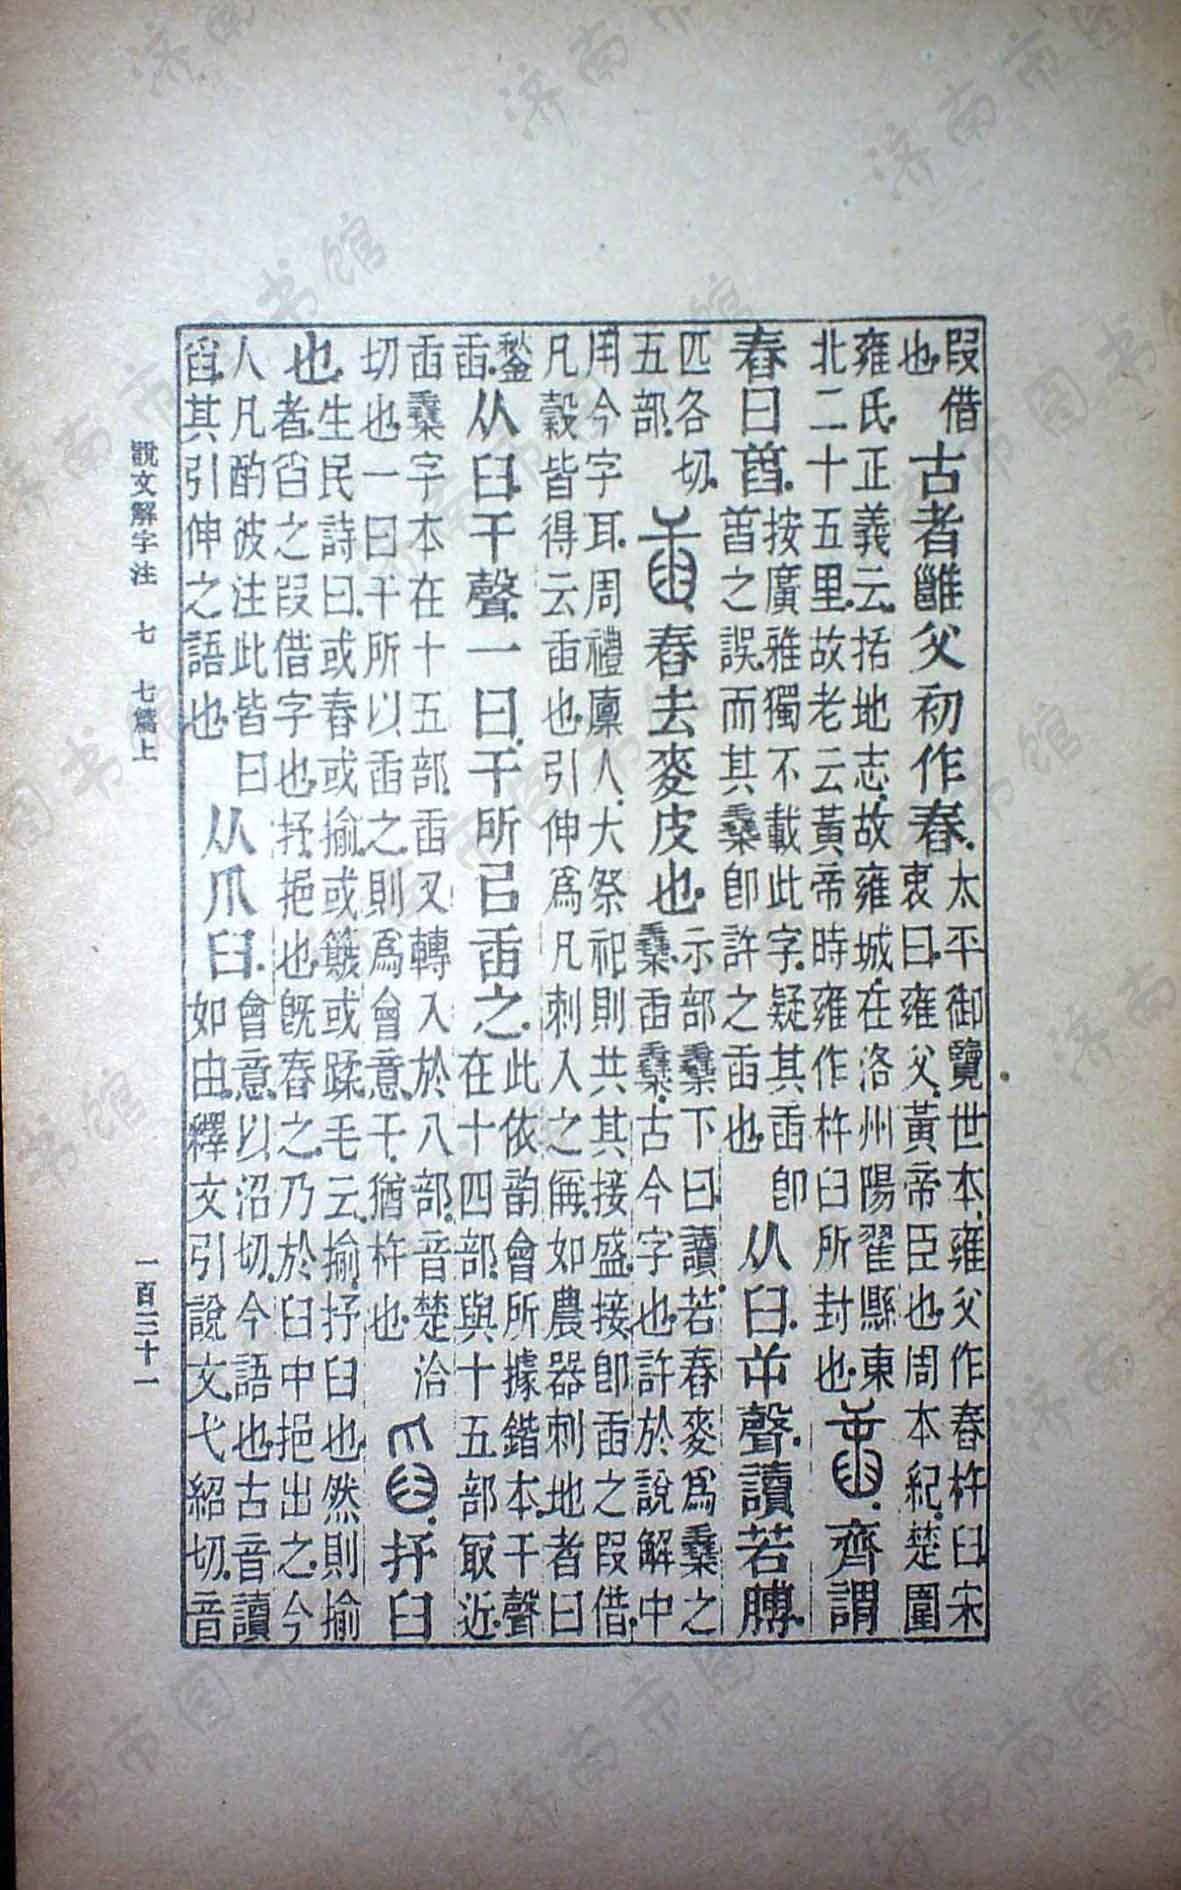 叚借
也.
古者雝父初作舂.
太平御覽世本.雍父作舂杵臼.宋
衷曰.雍父.黃帝臣也.周本紀.楚圍
雍氏.正義云.括地志.故雍城.在洛州陽翟縣東
北二十五里.故老云黃帝時雍作杵臼所封也.
齊謂
舂曰䑔.
按廣雅獨不載此字.疑其臿卽
䑔之誤.而其㯔卽許之臿也
从臼.屰聲.讀若膊.
匹各切.
五部.
臿.舂去麥皮也.
示部㯔下曰.讀若舂麥爲㯔之
㯔.臿㯔.古今字也.許於說解中
用今字耳.周禮廩人.大祭祀則共其接盛.接卽臿之叚借.
凡穀皆得云臿也.引伸爲凡刺入之稱.如農器刺地者曰
鍫
臿.
从臼.干聲.一曰.干所㠯臿之.
此依韵會所據鍇本.干聲
在十四部.與十五部冣近.
臿㯔字本在十五部.臿又轉入於八部.音楚洽
切也.一曰干所以臿之.則爲會意.干.猶杵也.
舀.抒臼
也.
生民詩曰.或舂或揄.或簸或蹂.毛云.揄.抒臼也.然則揄
者.舀之叚借字也.抒.挹也.旣舂之.乃於臼中挹出之.今
人凡酌彼注此皆曰
舀.其引伸之語也.
从爪臼.
會意.以沼切.今語也.古音讀
如由.釋文引說文.弋紹切.音
說文解字注 七 七篇上 一百三十一